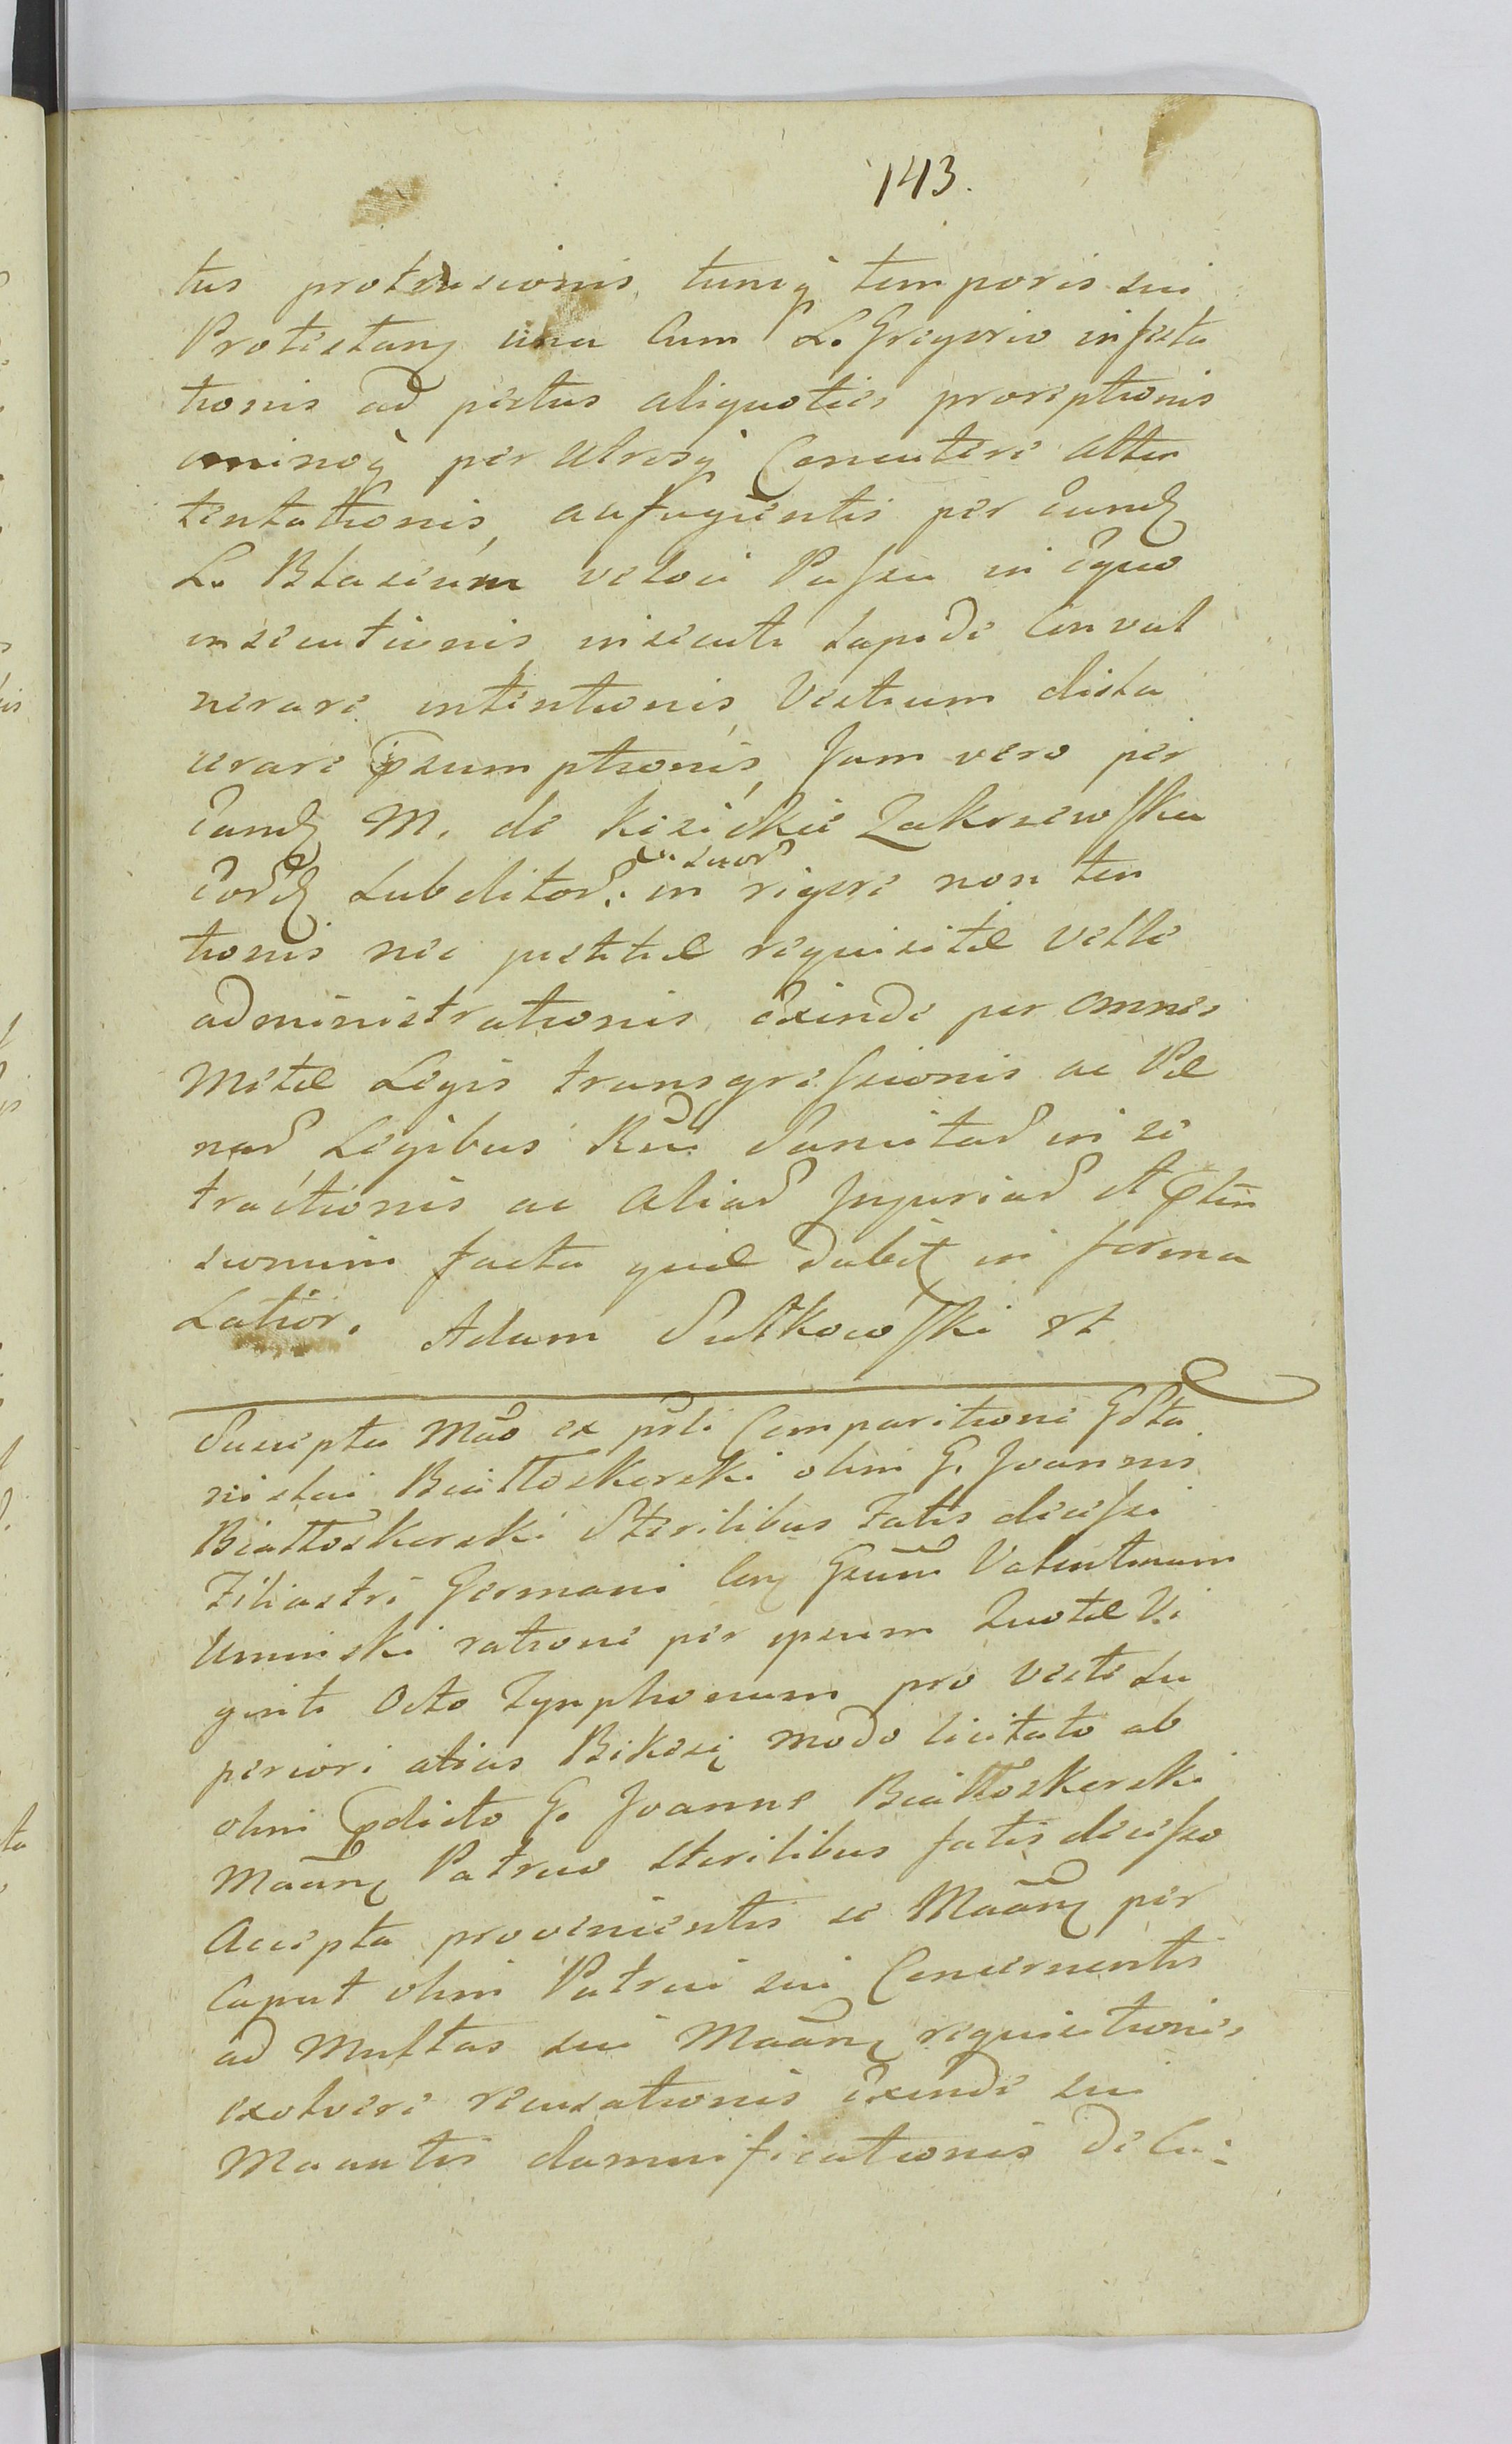 143.
tus protrusionis, tunq̃ temporis sui
Protestanṫ una Cum L. Gregorio infesta
tionis ad pectus aliquoties proreptionis
ominoq̃ per utrosq̃ Concutere atten
tentationis, aufugientis per Eundȝ
L. Blasium veloci Passu in Equo
insecutionis, insecuti Lapide Convul
nerare intentionis, Vestium dila
cerare p̱sumptionis, Jam vero per
Eandȝ M. de Kizińskie Zakrzewska
Eordȝ Subditor. :suor in rigere non ten
tionis nec justitiæ requisitæ velle
administrationis Exinde per omnes
Metæ Legis transgressionis ac Pæ
nar Legibus Rñi Sancitar in se
tractionis ac aliar Injuriar et p̱ten
sionum facta quæ dabit in forma
Latior. Adam Sułkowski st
Suscepta Mão ex p̃sti Comparitione Gsta
nislai Białłoskorski olim G. Joannis
Białłoskorski Sterilibus Fatis decessi
Filiastri Germani Con Gsum Valentinum
Uminski ratione per ipsum Quotæ Vi
ginti Octo Tynphonum pro Veste Su
periori alias Bikesȩ modo licitato ab
olim p̱dicto G. Joanne Białłoskorski
Maãn Patruo Sterilibus fatis decesso
Accepta provenientis se Maãn per
Caput olim Patrui sui Concernentis
ad Multas sui Maãn requisitiones
exolvere recusationis Exinde sui
Maantis damnificationis de Cu: